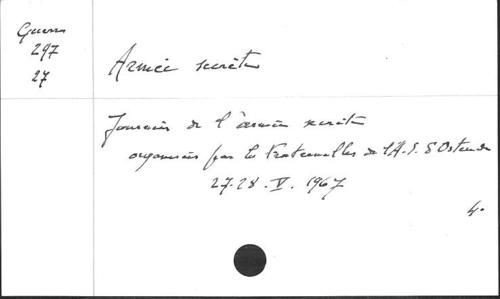 Guerre
297
27
Armée secrète
Journées de l'armée secrète
organisées par les Fraternelles de l'A.S. d'Ostende
27-28.V.1967
4.